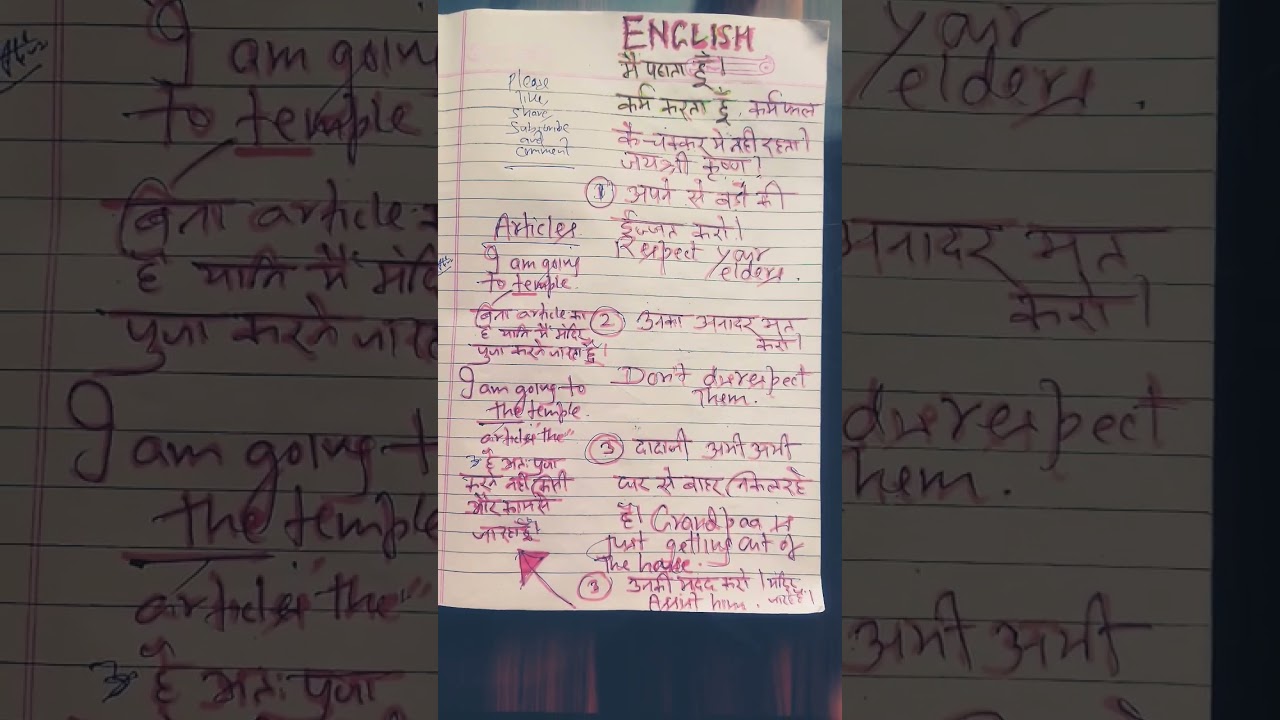 ENGLISH
मैं पढ़ाता हूँ।
Please
like
share
Subscribe
and
comment
कर्म करता हूँ, कर्मफल
के चक्कर में नहीं रहता।
जय श्री कृष्ण।
① अपने से बड़ों की
ईज्जत करो।
Respect your
elders.
② उनका अनादर मत
करो।
Don't disrespect
them.
③ दादाजी अभी अभी
घर से बाहर निकल रहे
हैं। Grandpaa is
Just getting out of
the house.
③ उनकी मदद करो।
Assist him.
मंदिर
जा रहे हैं।
Articles
I am going
to temple.
बिना article का
है यानि मैं मंदिर
पुजा करने जा रहा हूँ।
I am going to
the temple.
articles "the"
है अतः पुजा
करने नहीं किसी
और काम से
जा रहा हूँ।